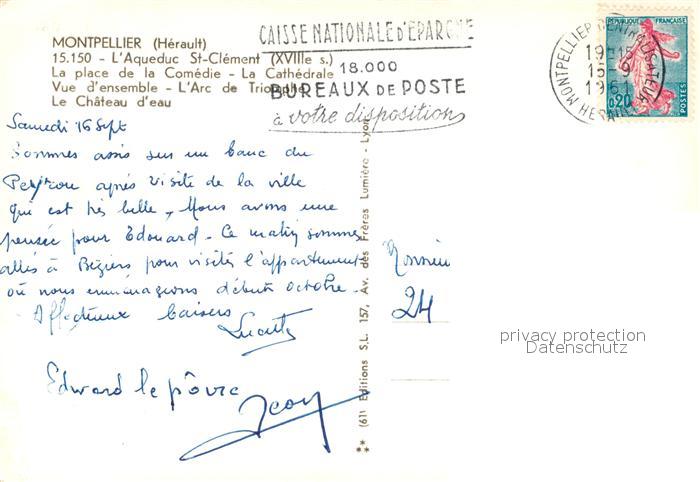 MONTPELLIER (Hérault)
15.150 - L'Aqueduc St-Clément (XVIIIe s.)
La place de la Comédie - La Cathédrale
Vue d'ensemble - L'Arc de Triomphe
Le Château d'eau
CAISSE NATIONALE D'EPARGNE
18.000
BUREAUX DE POSTE
à votre disposition
MONTPELLIER CENTRALISATEUR
19-15
15-9
1961
HERAULT
REPUBLIQUE FRANÇAISE
0,20
POSTES
Samedi 16 Sept
Sommes assis sur un banc du
Peyrou après visite de la ville
qui est très belle, Nous avons une
pensée pour Edouard - Ce matin sommes
allés à Béziers pour visiter l'appartement
où nous emménagerons début octobre -
Affectueux baisers
Lucette
Edward le pôvre
Jean
(61) Editions S.L. 157, Av. des Frères Lumière - Lyon
Monsieur
24
privacy protection
Datenschutz